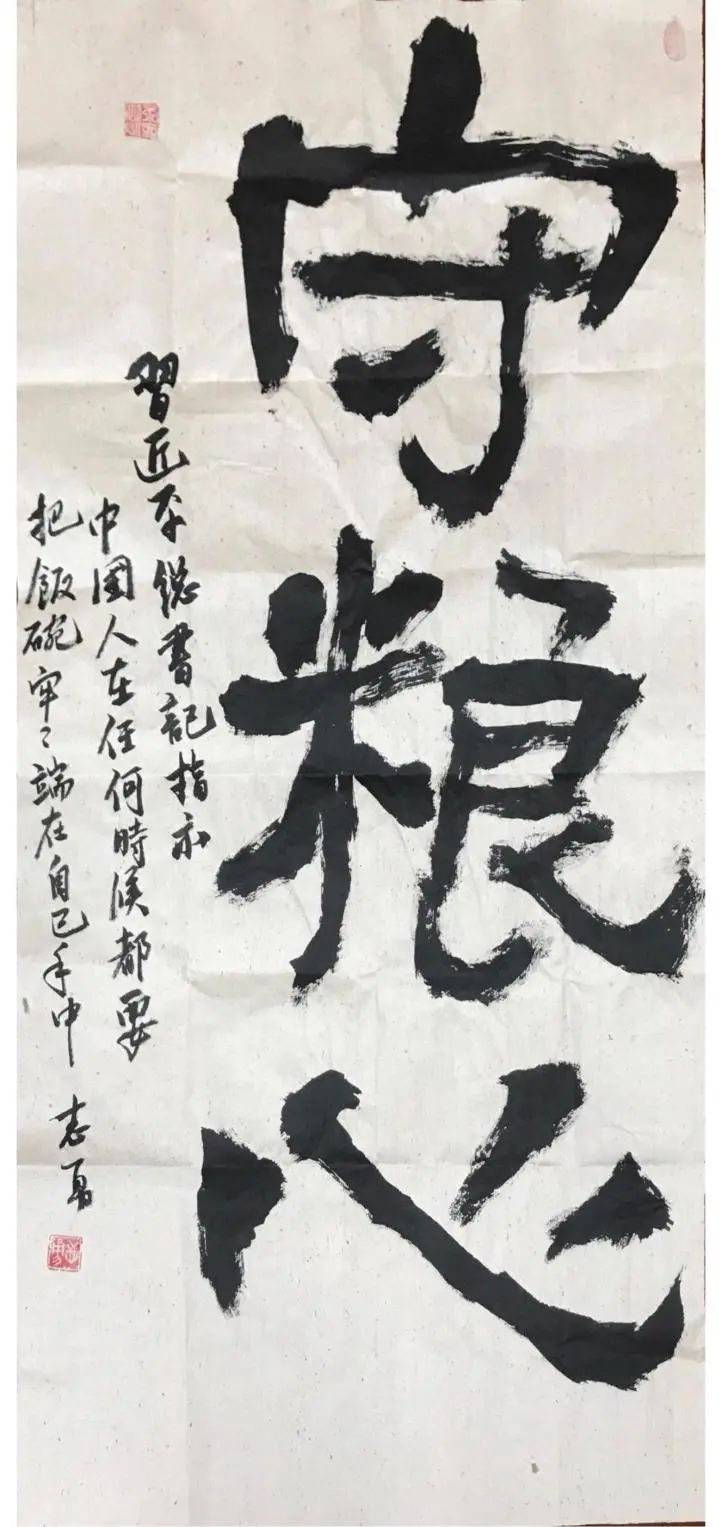 守粮心
習近平總書記指示
中國人在任何時候都要
把飯碗牢〻端在自己手中
志勇